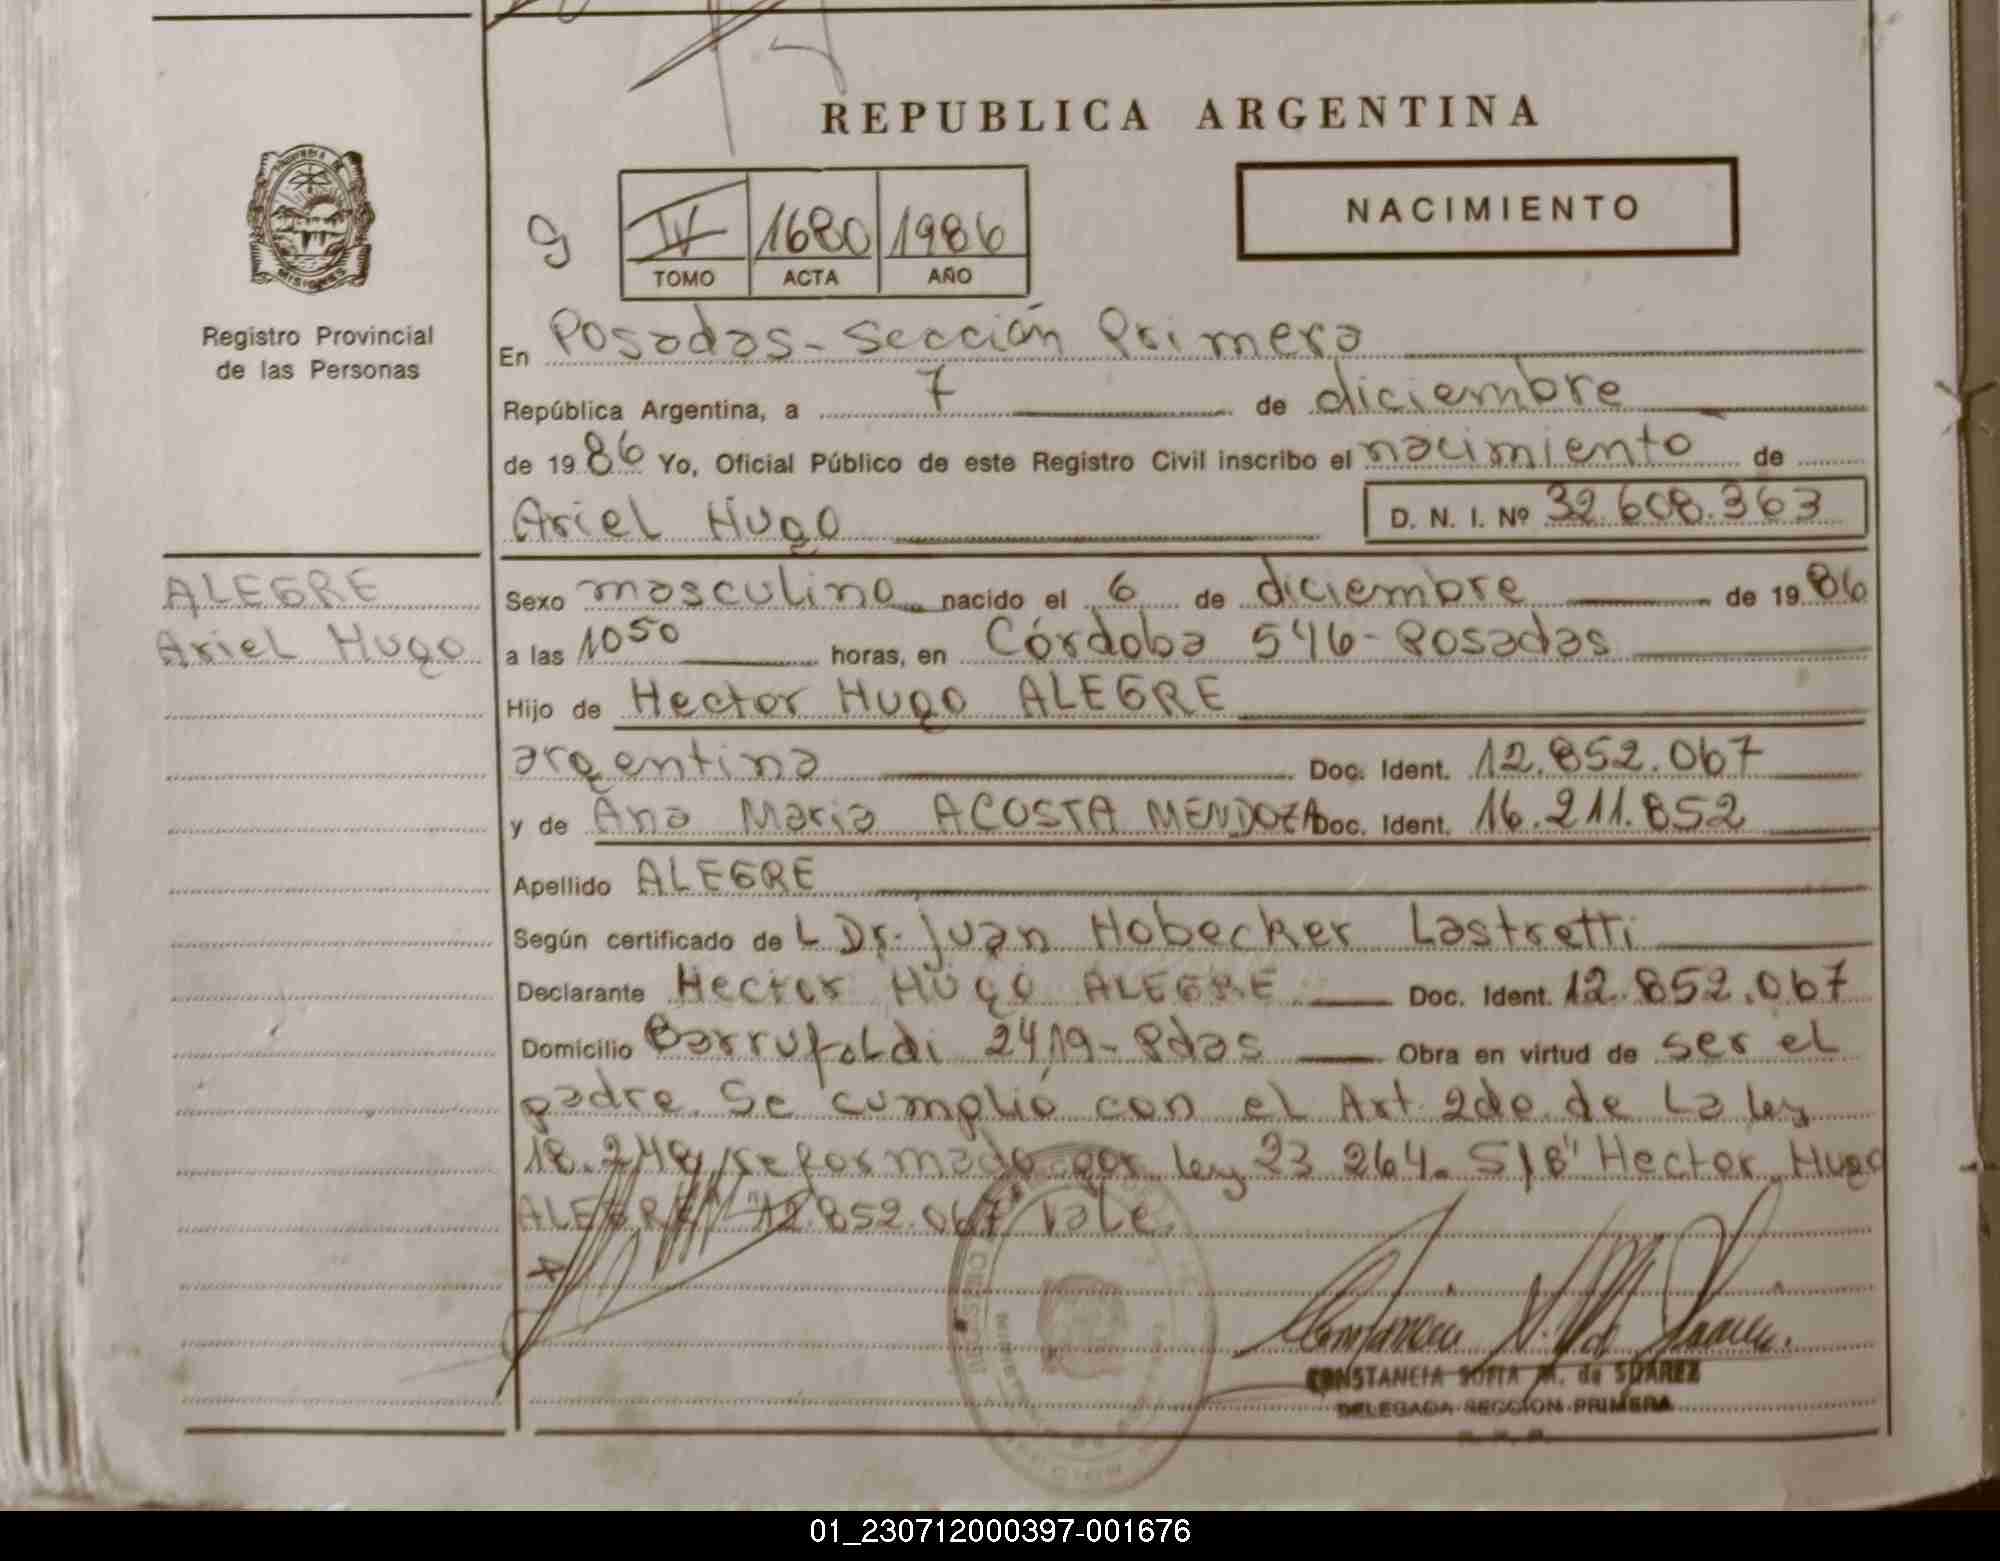 REPUBLICA ARGENTINA
NACIMIENTO
9
IV 1680 1986
TOMO ACTA AÑO
Registro Provincial
de las Personas
En Posadas - Sección Primera
República Argentina, a 7 de diciembre
de 1986 Yo, Oficial Público de este Registro Civil inscribo el nacimiento de
Ariel Hugo D. N. I. Nº 32.608.363
ALEGRE
Ariel Hugo
Sexo masculino nacido el 6 de diciembre de 1986
a las 10 50 horas, en Córdoba 546 - Posadas
Hijo de Hector Hugo ALEGRE
argentina Doc. Ident. 12.852.067
y de Ana Maria ACOSTA MENDOZA Doc. Ident. 16.211.852
Apellido ALEGRE
Según certificado de L Dr. Juan Hobecker Lastretti
Declarante Hector Hugo ALEGRE Doc. Ident. 12.852.067
Domicilio Barrufaldi 2419 - Pdas Obra en virtud de ser el
padre. Se cumplió con el Art. 2do de La ley
18.248 reformado por ley 23 264. S/B' Hector Hugo
ALEGRE "12.852.067 Vale.
CONSTANCIA SOFIA M. de SUAREZ
DELEGADA SECCION PRIMERA
01_230712000397-001676